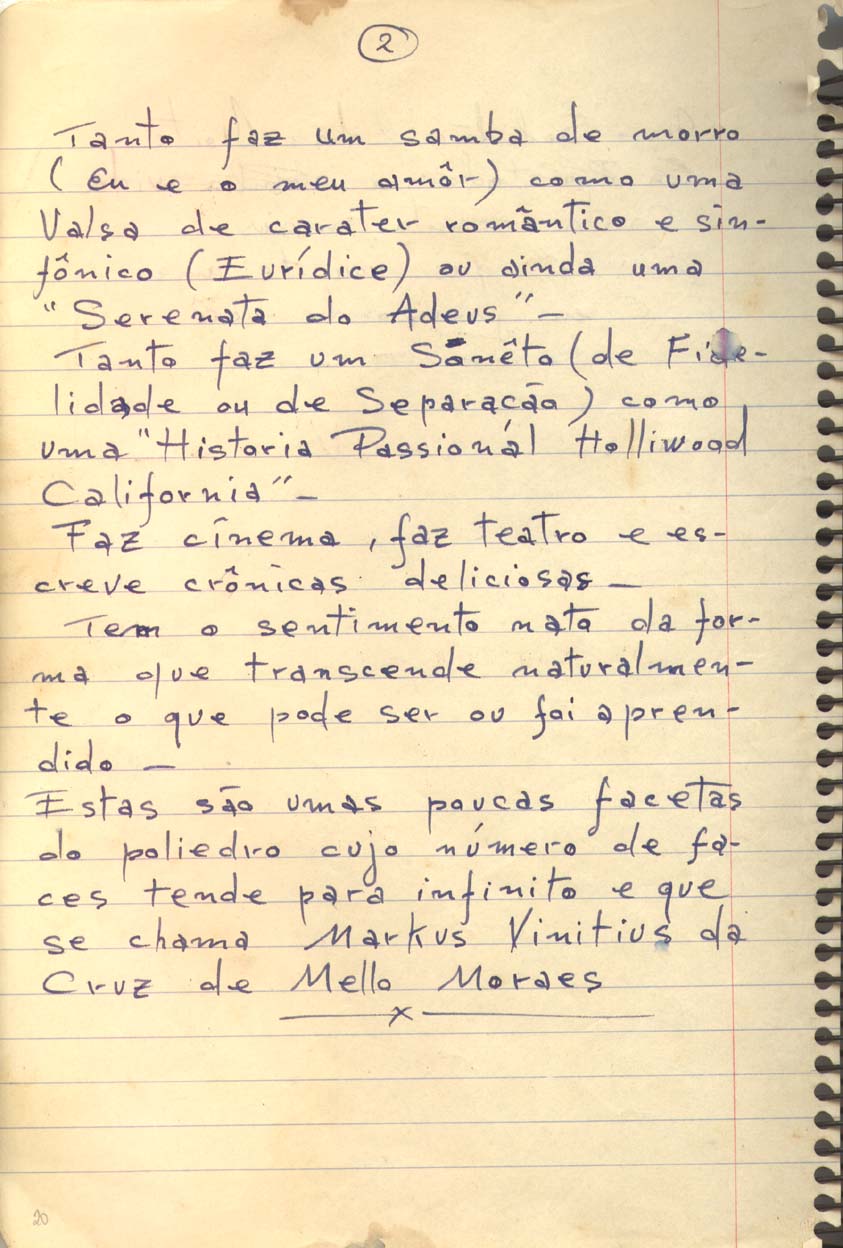 2
Tanto faz um samba de morro
(Eu e o meu amôr) como uma
Valsa de carater romântico e sin-
fônico (Eurídice) ou ainda uma
"Serenata do Adeus" —
Tanto faz um Sonêto (de Fide-
lidade ou de Separação) como
uma "Historia Passionál Holliwood
California" —
Faz cinema, faz teatro e es-
creve crônicas deliciosas —
Tem o sentimento nato da for-
ma que transcende naturalmen-
te o que pode ser ou foi apren-
dido —
Estas são umas poucas facetas
do poliedro cujo número de fa-
ces tende para infinito e que
se chama Markus Vinitius da
Cruz de Mello Moraes
x
20